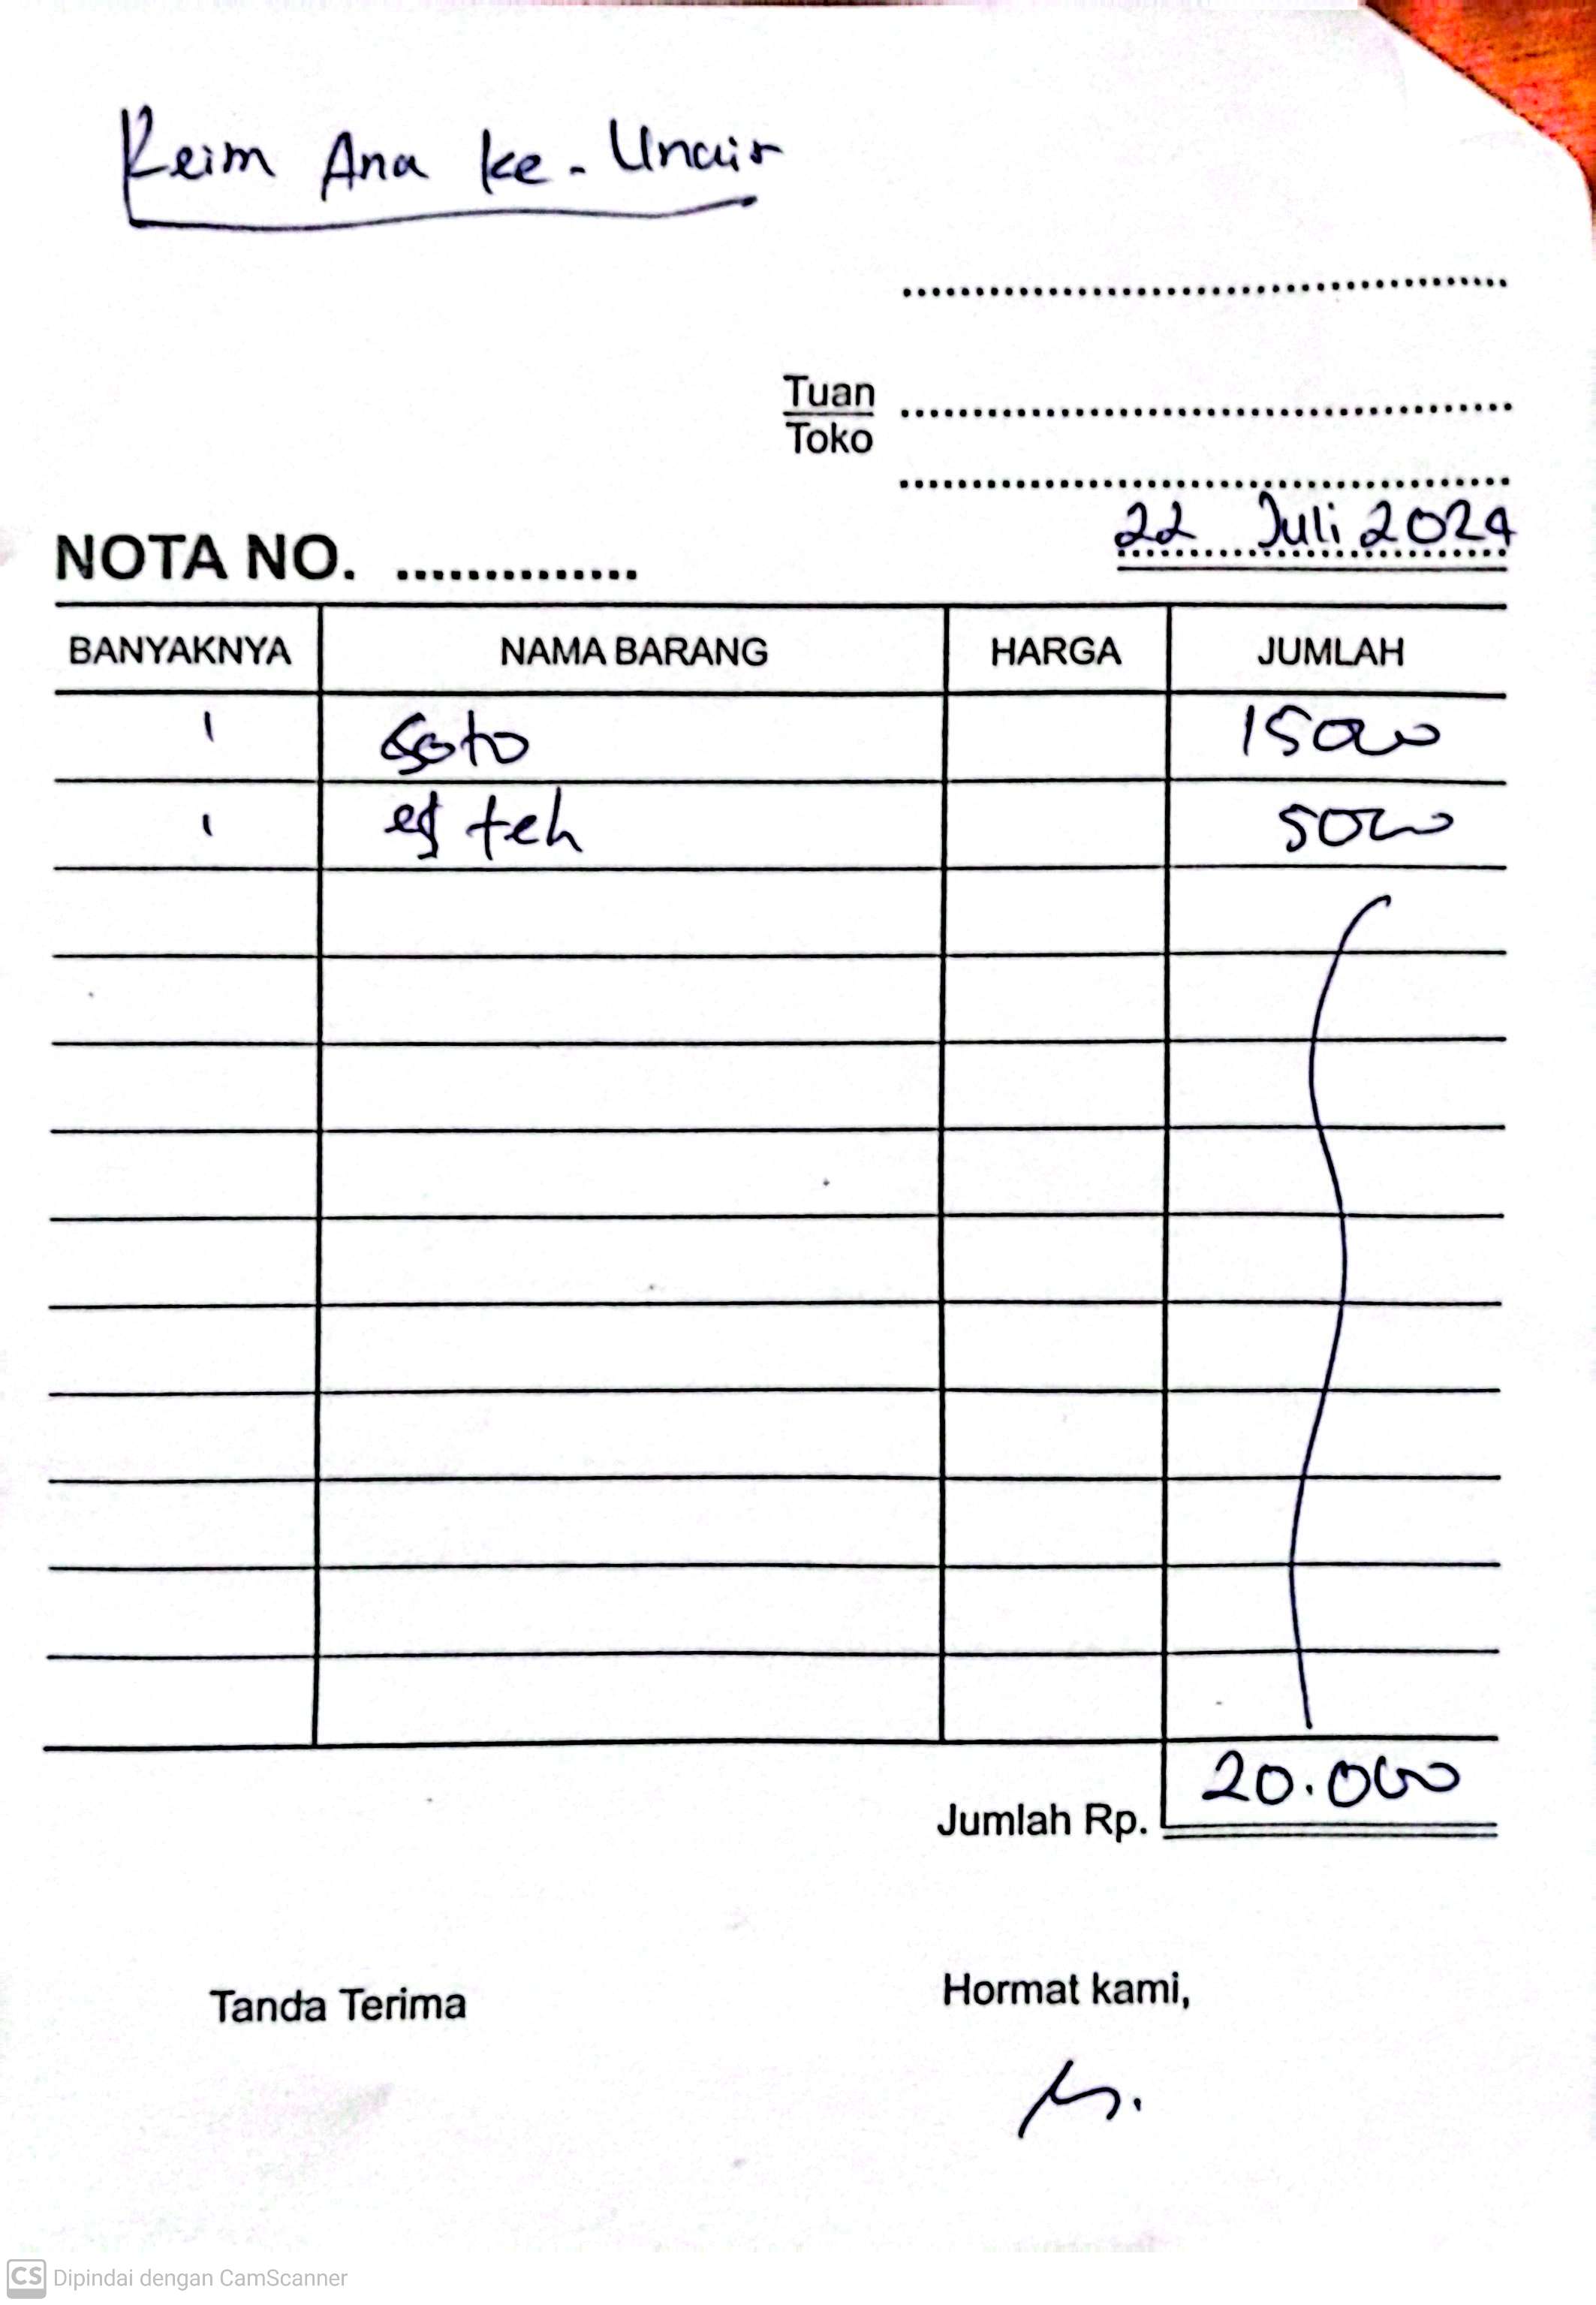 Reim Ana ke-Unair
Tuan
Toko
22 Juli 2024
NOTA NO. ..............
BANYAKNYA NAMA BARANG HARGA JUMLAH
1 Soto 15000
1 es teh 5000
Jumlah Rp. 20.000
Tanda Terima Hormat kami,
CS Dipindai dengan CamScanner